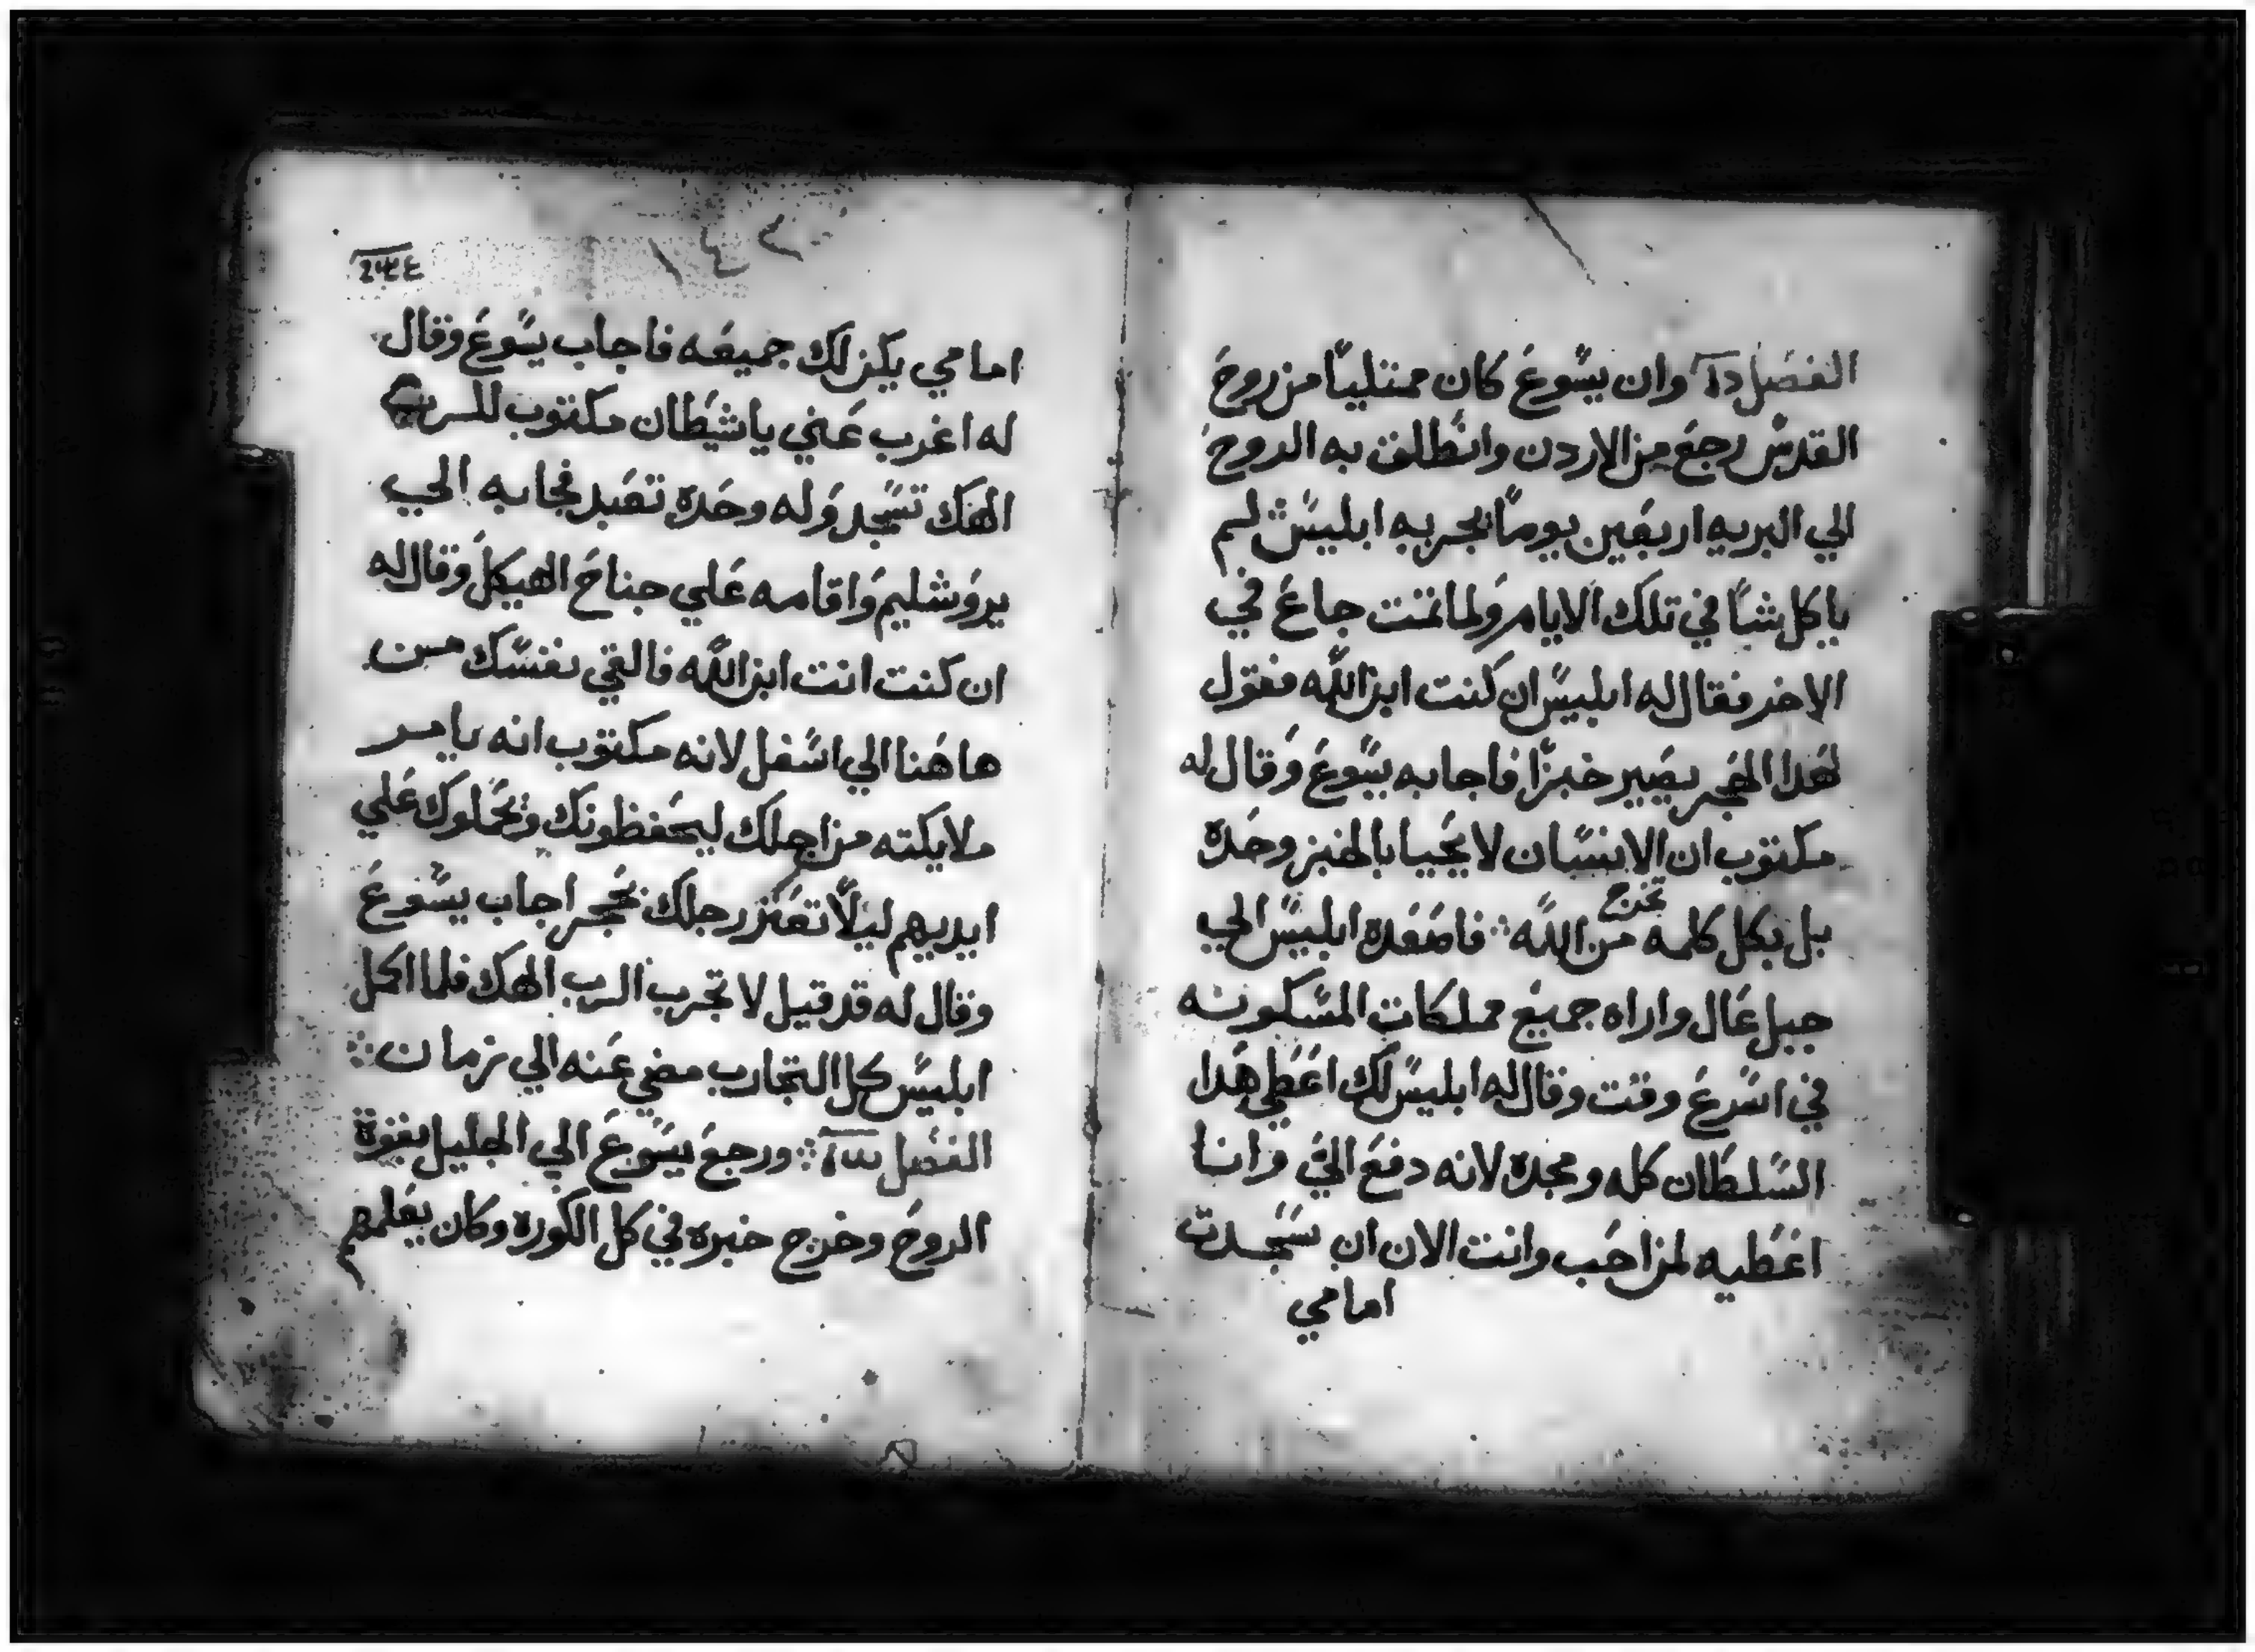 الفصل وان يسوع كان ممتلياً من روح
القدس رجع من الاردن وانطلق به الروح
الي البريه اربعين يوماً يجرب به ابليس لم
ياكل شياً في تلك الايام ولما تمت جاع في
الاخر فقال له ابليس ان كنت ابن الله فقول
لهدا الحجر يصير خبزاً فاجابه يسوع وقال له
مكتوب ان الانسان لا يحيا بالخبز وحده
بل بكل كلمه تخرج من الله فاصعده ابليس الي
جبل عال واراه جميع مملكات المسكونه
في اسرع وقت وقال له ابليس لك اعطي هدا
السلطان كله ومجده لانه دفع الي وانا
اعطيه لمن احب وانت الان ان سجدت
امامي
امامي يكن لك جميعه فاجاب يسوع وقال
له اغرب عني يا شيطان مكتوب للرب
الهك تسجد وله وحده تعبد فجابه الي
يروشليم واقامه علي جناح الهيكل وقال له
ان كنت انت ابن الله فالقي نفسك من
هاهنا الي اسفل لانه مكتوب انه يامر
ملايكته من اجلك ليحفظونك وتحملوك علي
ايديهم ليلاً تعتر رجلك بحجر اجاب يسوع
وقال له قد قيل لا تجرب الرب الهك فلما اكمل
ابليس كل التجارب مضي عنه الي زمان
الفصل ورجع يسوع الي الجليل بقوة
الروح وخرج خبره في كل الكوره وكان يعلمهم